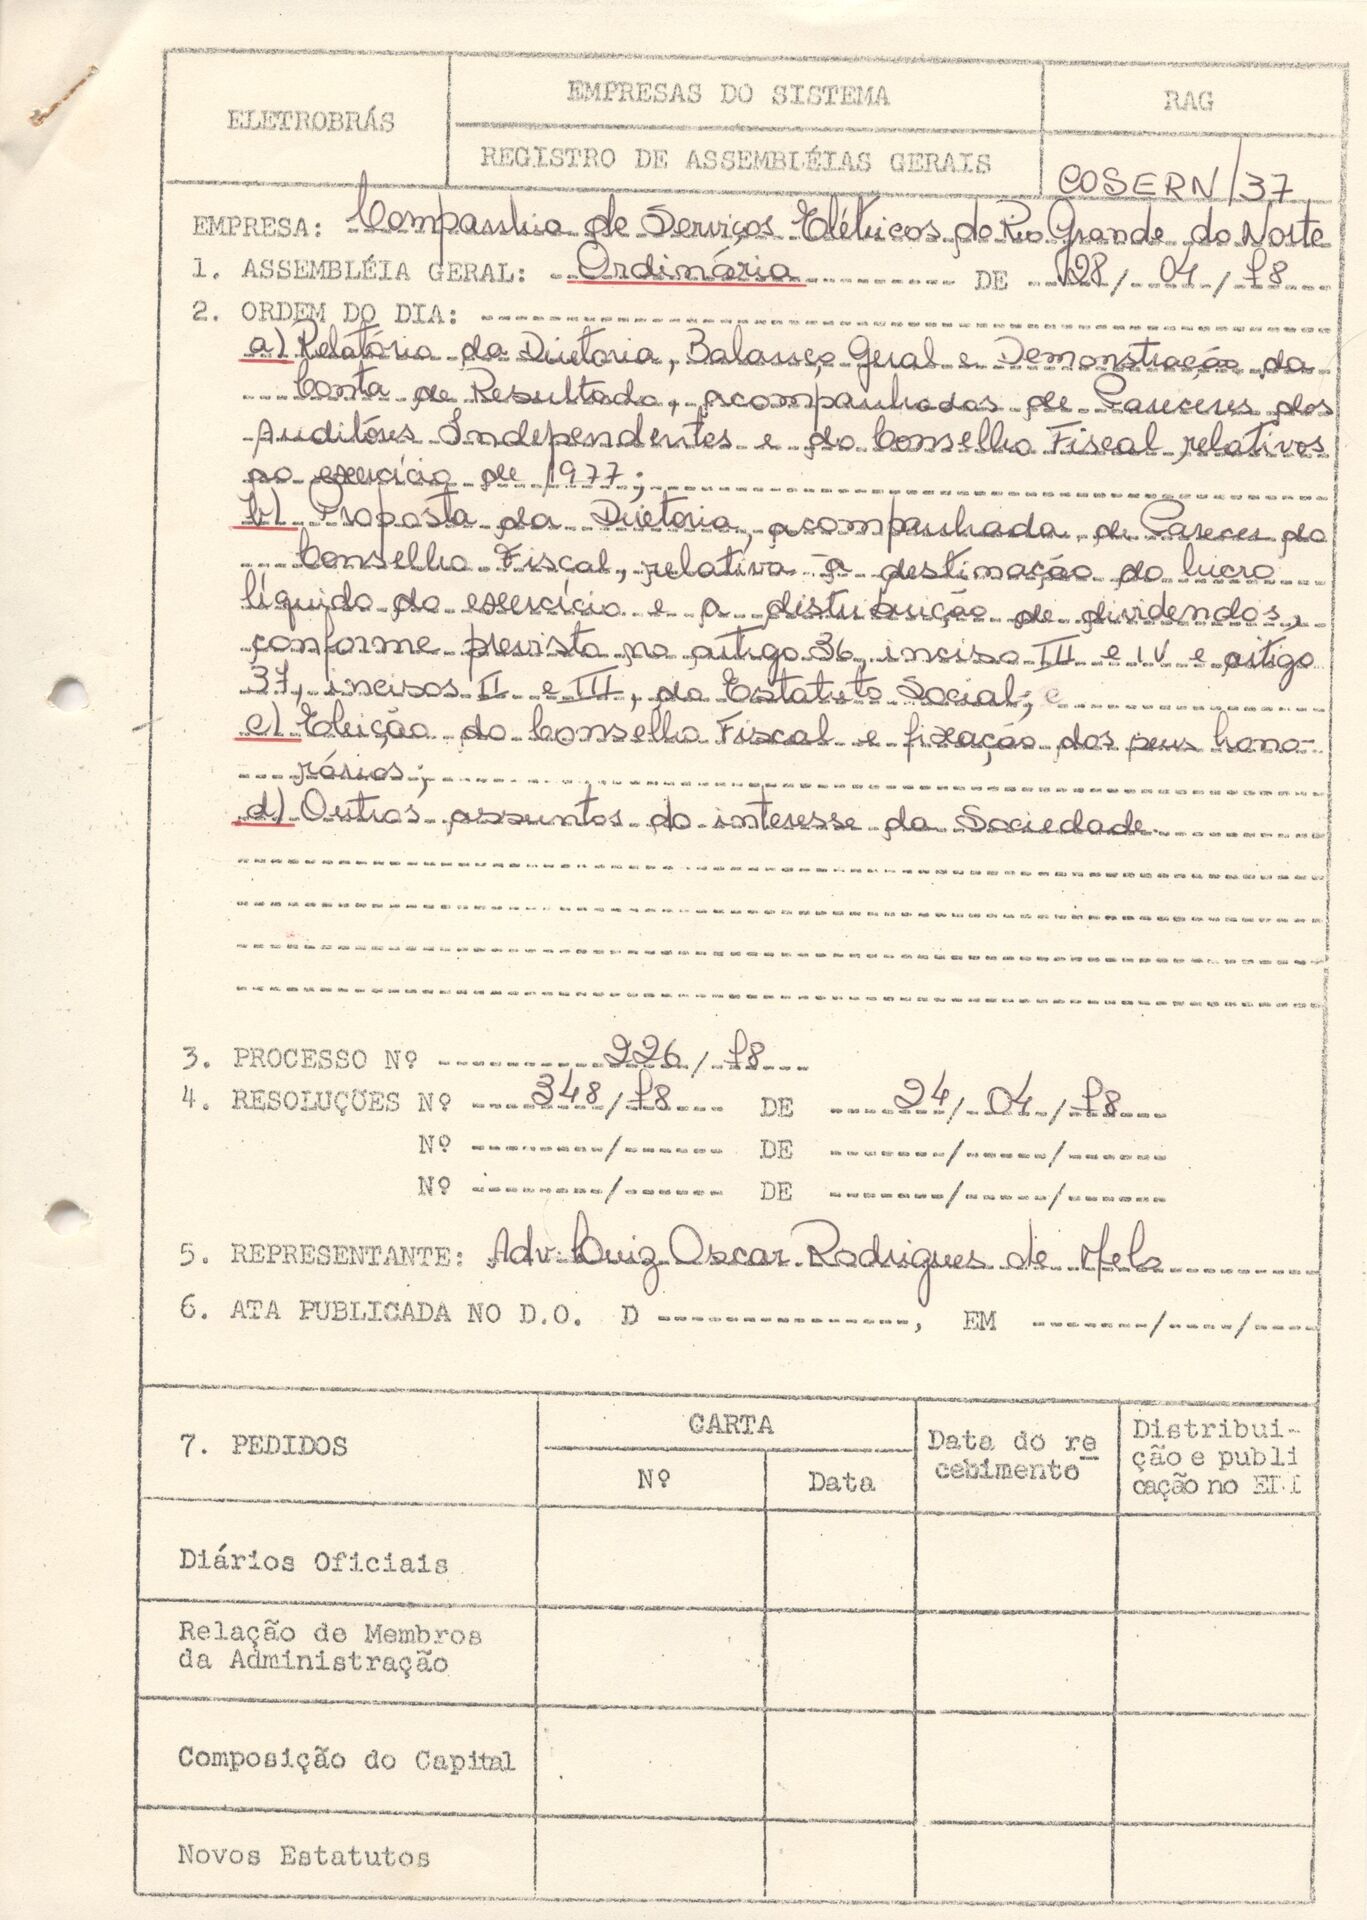 ELETROBRÁS
EMPRESAS DO SISTEMA
REGISTRO DE ASSEMBLÉIAS GERAIS
RAG
COSERN/37
EMPRESA: Companhia de Serviços Elétricos do Rio Grande do Norte
1. ASSEMBLÉIA GERAL: Ordinária DE 28/04/78
2. ORDEM DO DIA:
a) Relatório da Diretoria, Balanço Geral e Demonstração da
Conta de Resultado, acompanhados de Pareceres dos
Auditores Independentes e do Conselho Fiscal, relativos
ao exercício de 1977;
b) Proposta da Diretoria, acompanhada de Parecer do
Conselho Fiscal, relativa à destinação do lucro
líquido do exercício e a distribuição de dividendos,
conforme prevista no artigo 36, inciso III e IV e artigo
37, incisos II e III, do Estatuto Social; e
c) Eleição do Conselho Fiscal e fixação dos seus hono-
rários;
d) Outros assuntos do interesse da Sociedade.
3. PROCESSO Nº 226/78
4. RESOLUÇÕES Nº 348/78 DE 24/04/78
Nº / DE / /
Nº / DE / /
5. REPRESENTANTE: Adv. Luiz Oscar Rodrigues de Melo
6. ATA PUBLICADA NO D.O. D , EM / /
7. PEDIDOS
CARTA
Nº
Data
Data do re
cebimento
Distribui-
ção e publi
cação no
Diários Oficiais
Relação de Membros
da Administração
Composição do Capital
Novos Estatutos